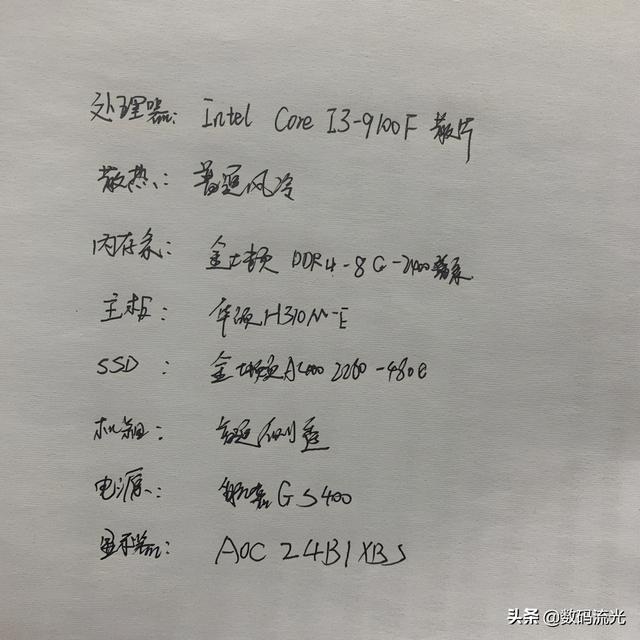 处理器: Intel Core I3-9100F 散片
散热: 普通风冷
内存条: 金士顿 DDR4-8G-2400普条
主板: 华硕H310M-E
SSD: 金士顿A400 2280-480G
机箱: 普通侧透
电源: GS400
显示器: AOC 24B1XBS
头条 @数码流光